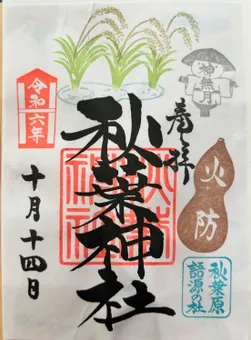 奉拝
神無月
火防
秋葉神社
秋葉原
語源の社
令和
六年
十月十四日